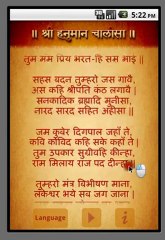 5:22 PM
॥ श्री हनुमान चालीसा ॥
तुम मम प्रिय भरत-हि सम भाई ॥
सहस बदन तुम्हरो जस गावै,
अस कहि श्रीपति कंठ लगावै ॥
सनकादिक ब्रह्मादि मुनीसा,
नारद सारद सहित अहीसा ॥
जम कुबेर दिगपाल जहाँ ते,
कवि कोविद कहि सके कहाँ ते ॥
तुम उपकार सुग्रीवहि कीन्हा,
राम मिलाय राज पद दीन्हा ॥
तुम्हरो मंत्र विभीषण माना,
लंकेश्वर भये सब जग जाना ।
Language